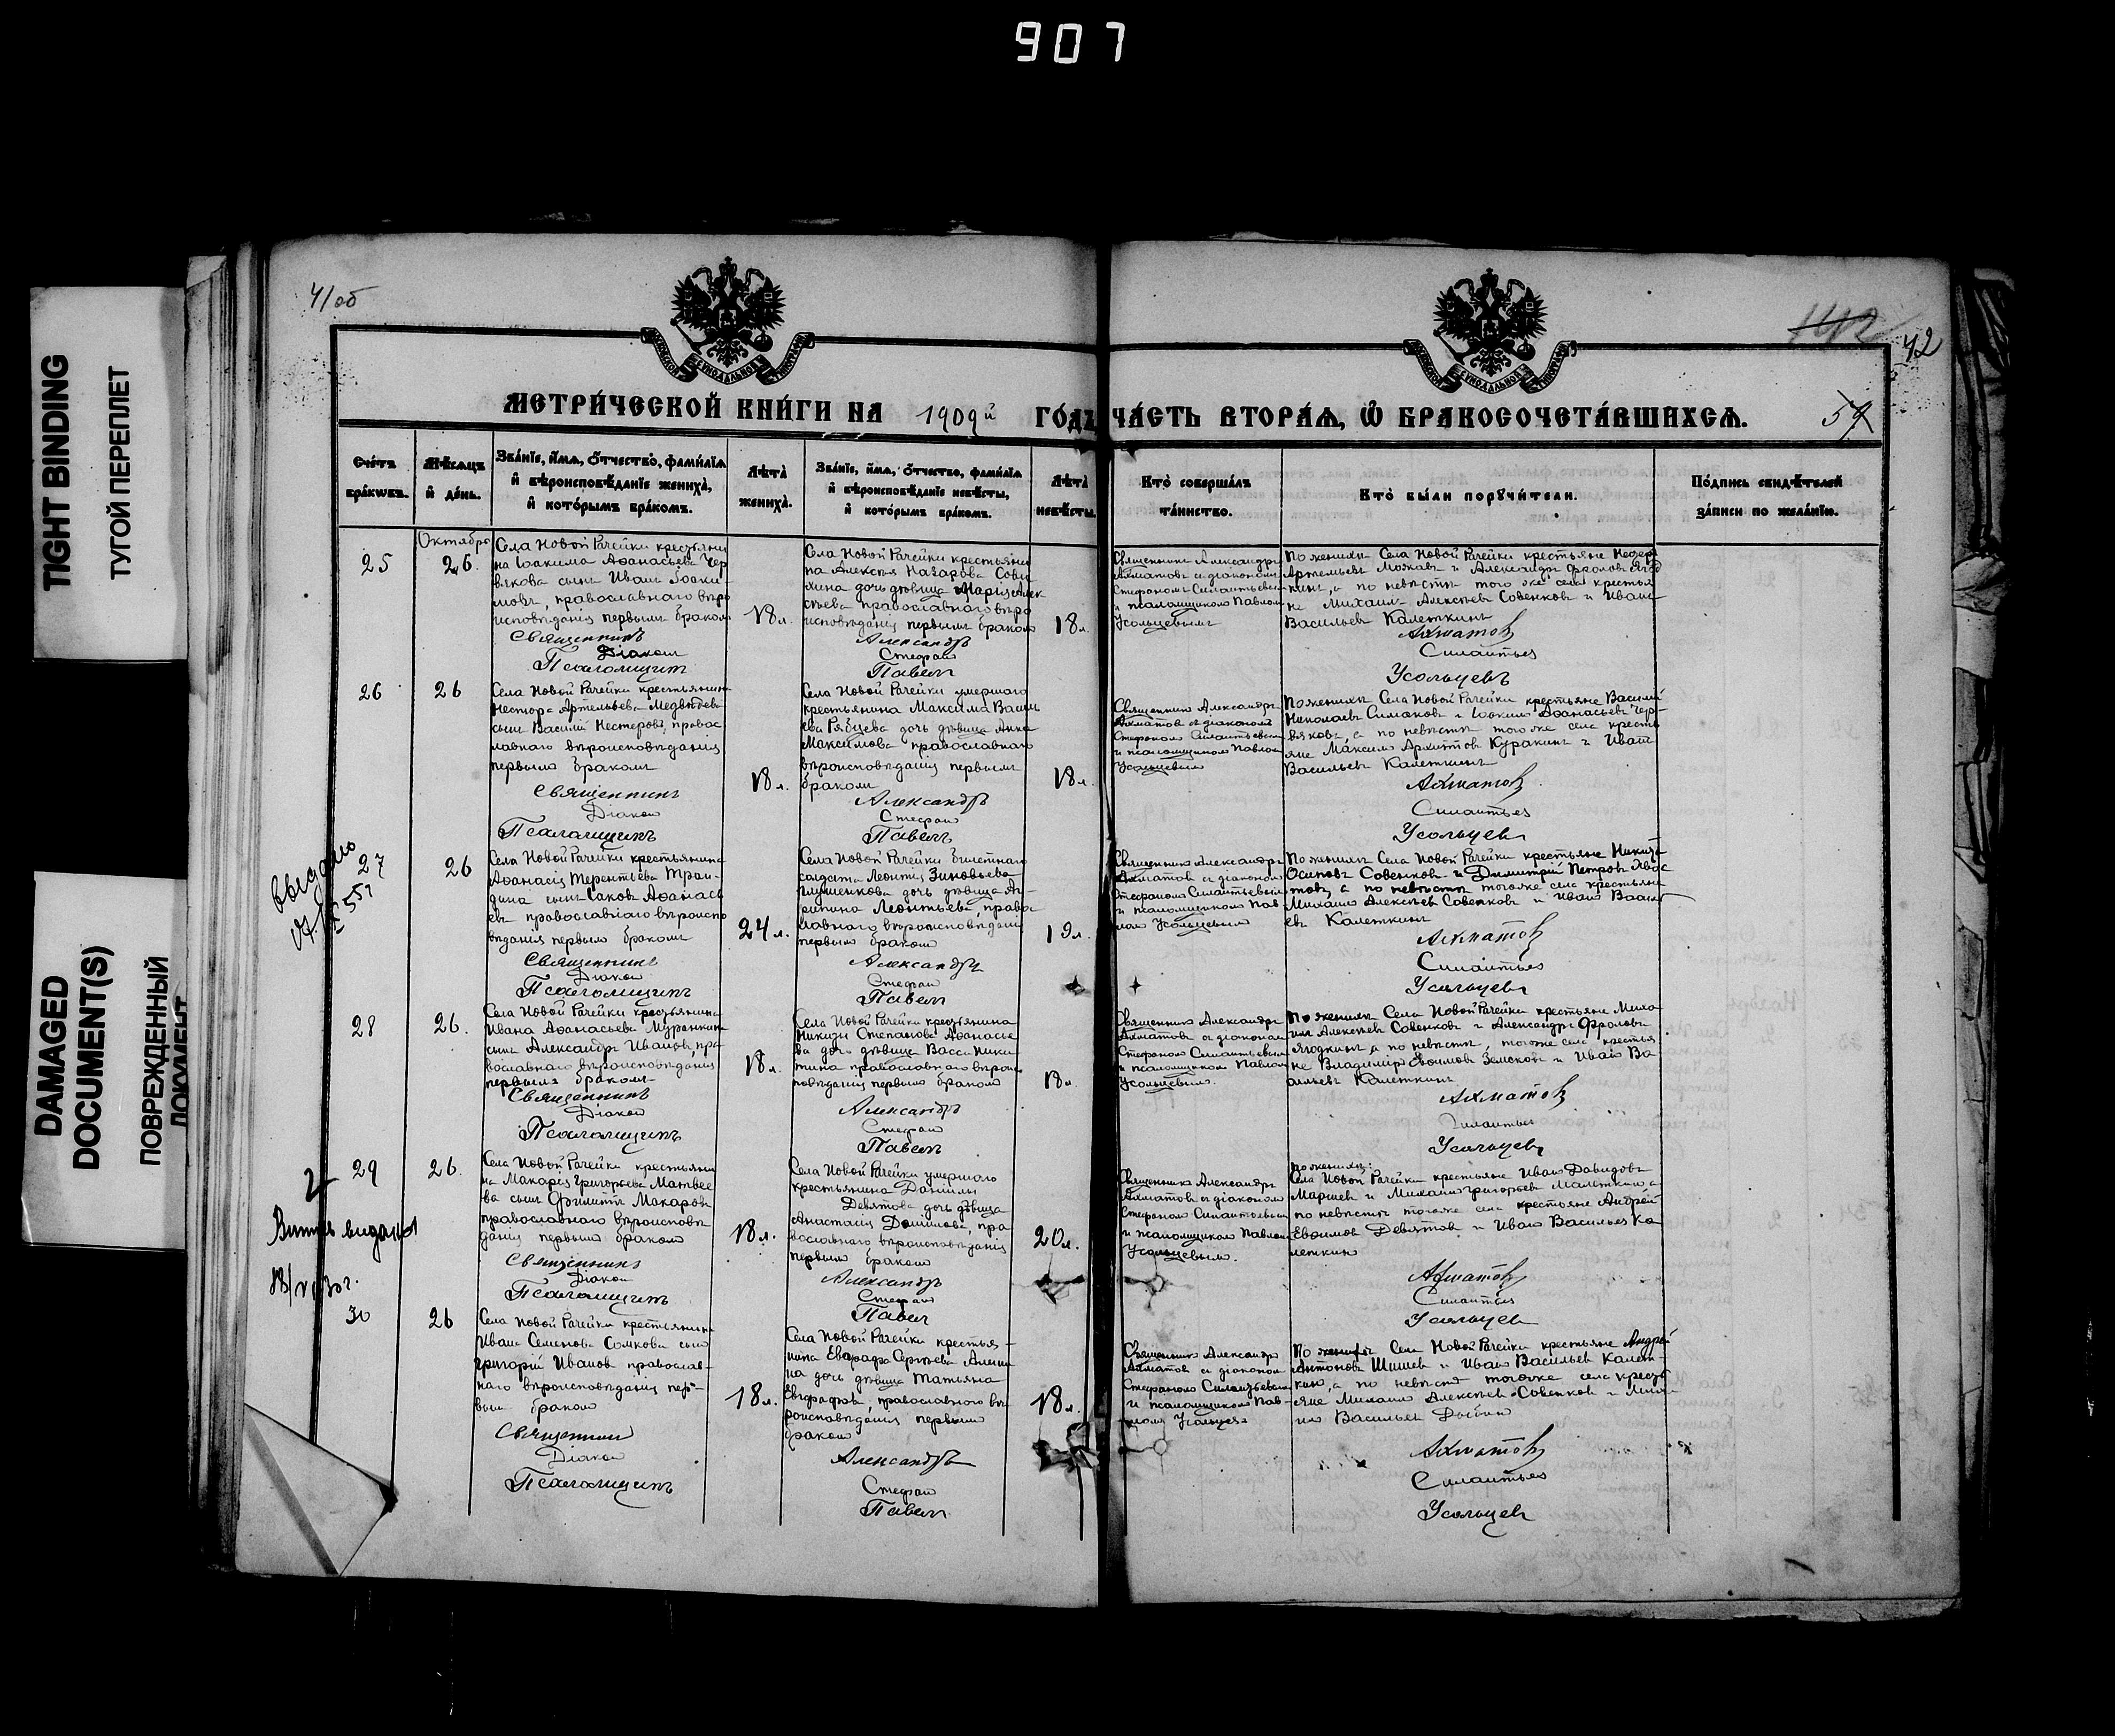 907
TIGHT BINDING
ТУГОЙ ПЕРЕПЛЕТ
DAMAGED
DOCUMENT(S)
ПОВРЕЖДЕННЫЙ
ДОКУМЕНТ
41об
42
МЕТРИ́ЧЕСКОЙ КНИ́ГИ НА 1909й ГО́ДЪ ЧА́СТЬ ВТОРА́Я, Ѡ БРАКОСОЧЕТА́ВШИХСЯ.
Сче́тъ
бра́кѡвъ.
Мѣ́сяцъ
и де́нь.
Зва́нїе, и́мя, ѻ́тчество, фами́лїя
и вѣроисповѣ́данїе жениха̀,
и кото́рымъ бра́комъ.
Лѣта̀
жениха̀.
Зва́нїе, и́мя, ѻ́тчество, фами́лїя
и вѣроисповѣ́данїе невѣ́сты,
и кото́рымъ бра́комъ.
Лѣта̀
невѣ́сты.
Кто̀ соверша́лъ
та́инство.
Кто̀ бы́ли порꙋчи́тели.
По́дпись свидѣ́телей
за́писи по жела́нїю.
25
Октября
26.
Села Новой Рачейки крестьяни
на Іоакима Аѳанасьева Чер
вякова сынъ Иванъ Іоаки-
мовъ, православнаго вѣро
исповѣданія первымъ бракомъ
18 л.
Села Новой Рачейки крестьяни
на Алексѣя Назарова Сови
хина дочь дѣвица Марія Алек
сѣева православнаго вѣро
исповѣданія первымъ бракомъ
18 л.
Священникъ Александръ
Ахматовъ съ діакономъ
Стефаномъ Силантьевымъ
и псаломщикомъ Павломъ
Усольцевымъ
По женихѣ Села Новой Рачейки крестьяне
Артемьевъ и Александръ Фроловъ Ягод
кинъ, а по невѣстѣ того же села крестья
не Михаилъ Алексѣевъ Совенковъ и Иванъ
Васильевъ Калеткинъ
Священникъ Александръ Ахматовъ
Діаконъ Стефанъ Силантьевъ
Псаломщикъ Павелъ Усольцевъ
26
26
Села Новой Рачейки крестьянина
Нестора Артемьева Медвѣдева
сынъ Василій Нестеровъ, правос
лавнаго вѣроисповѣданія
первымъ бракомъ
18 л.
Села Новой Рачейки умершаго
крестьянина Максима Василь
ева Рябцева дочь дѣвица Анна
Максимова православнаго
вѣроисповѣданія первымъ
бракомъ
18 л.
Священникъ Александръ
Ахматовъ съ діакономъ
Стефаномъ Силантьевымъ
и псаломщикомъ Павломъ
Усольцевымъ
По женихѣ Села Новой Рачейки крестьяне Василій
Николаевъ Симаковъ и Іоакимъ Аѳанасьевъ Чер-
вяковъ, а по невѣстѣ того же села кресть
яне Максимъ Архиповъ Куракинъ и Иванъ
Васильевъ Калеткинъ
Священникъ Александръ Ахматовъ
Діаконъ Стефанъ Силантьевъ
Псаломщикъ Павелъ Усольцевъ
27
26
Села Новой Рачейки крестьянина
Аѳанасія Терентьева
сынъ Іаковъ Аѳанась
евъ православнаго вѣроиспо
вѣданія первымъ бракомъ
24 л.
Села Новой Рачейки билетнаго
солдата Леонтія Зиновьева
Глушенкова дочь дѣвица Аг-
рипина Леонтьева, право
славнаго вѣроисповѣданія
первымъ бракомъ
19 л.
Священникъ Александръ
Ахматовъ съ діакономъ
Стефаномъ Силантьевымъ
и псаломщикомъ Пав
ломъ Усольцевымъ
По женихѣ Села Новой Рачейки крестьяне Никита
Осиповъ Совенковъ и Димитрій Петровъ Хвос
товъ, а по невѣстѣ того же села крестьяне
Михаилъ Алексѣевъ Совенковъ и Иванъ Василь
евъ Калеткинъ
Священникъ Александръ Ахматовъ
Діаконъ Стефанъ Силантьевъ
Псаломщикъ Павелъ Усольцевъ
28
26.
Села Новой Рачейки крестьянина
Ивана Аѳанасьева Муранкина
сынъ Александръ Ивановъ, пра
вославнаго вѣроисповѣданія
первымъ бракомъ
18 л.
Села Новой Рачейки крестьянина
Никиты Степанова Аѳанасье
ва дочь дѣвица Васса Ники
тина православнаго вѣроис
повѣданія первымъ бракомъ
18 л.
Священникъ Александръ
Ахматовъ съ діакономъ
Стефаномъ Силантьевымъ
и псаломщикомъ Павломъ
Усольцевымъ.
По женихѣ Села Новой Рачейки крестьяне Миха
илъ Алексѣевъ Совенковъ и Александръ Фроловъ
Ягодкинъ, а по невѣстѣ, того же села крестья
не Владиміръ Евѳимовъ Земсковъ и Иванъ Ва
сильевъ Калеткинъ
Священникъ Александръ Ахматовъ
Діаконъ Стефанъ Силантьевъ
Псаломщикъ Павелъ Усольцевъ
29
26.
Села Новой Рачейки крестьяни
на Макарія Григорьева Матвее
ва сынъ Филиппъ Макаровъ
православнаго вѣроисповѣ
данія первымъ бракомъ
18 л.
Села Новой Рачейки умершаго
крестьянина Даніила
Девятова дочь дѣвица
Анастасія Даніилова, пра
вославнаго вѣроисповѣданія
первымъ бракомъ
20 л.
Священникъ Александръ
Ахматовъ съ діакономъ
Стефаномъ Силантьевымъ
и псаломщикомъ Павломъ
Усольцевымъ.
По женихѣ:
Села Новой Рачейки крестьяне Иванъ Давидовъ
и Михаилъ Григорьевъ а
по невѣстѣ того же села крестьяне Андрей
Евѳимовъ Девятовъ и Иванъ Васильевъ Ка
леткинъ
Священникъ Александръ Ахматовъ
Діаконъ Стефанъ Силантьевъ
Псаломщикъ Павелъ Усольцевъ
30
26
Села Новой Рачейки крестьянина
Ивана Семенова Сомкова сынъ
Григорій Ивановъ православ-
наго вѣроисповѣданія пер-
вымъ бракомъ
18 л.
Села Новой Рачейки крестья-
нина Евграфа Сергѣева
дочь дѣвица Татьяна
Евграфова, православнаго вѣ-
роисповѣданія первымъ
бракомъ
18 л.
Священникъ Александръ
Ахматовъ съ діакономъ
Стефаномъ Силантьевымъ
и псаломщикомъ Пав-
ломъ Усольцевъ
По женихѣ Села Новой Рачейки крестьяне Андрей
Антоновъ Шишевъ и Иванъ Васильевъ Калет-
кинъ, а по невѣстѣ того же села кресть
яне Михаилъ Алексѣевъ Совенковъ и
Васильевъ
Священникъ Александръ Ахматовъ
Діаконъ Стефанъ Силантьевъ
Псаломщикъ Павелъ Усольцевъ